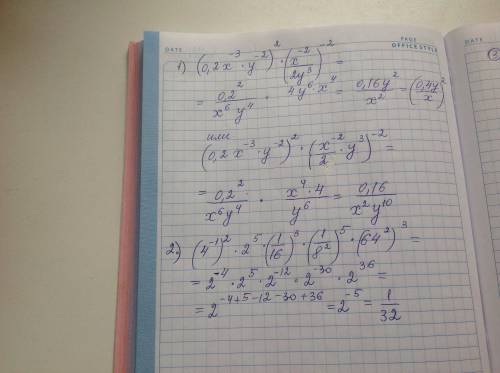 DATE
PAGE
OFFICE STYLE
DATE
1) (0,2x⁻³·y⁻²)²·(x⁻²/2y³)⁻² =
= 0,2²/x⁶y⁴ · 4y⁶·x⁴ = 0,16y²/x² = (0,4y/x)²
или
(0,2x⁻³·y⁻²)²·(x⁻²/2·y³)⁻² =
= 0,2²/x⁶y⁴ · x⁴·4/y⁶ = 0,16/x²y¹⁰
2.) (4⁻¹)²·2⁵·(1/16)³·(1/8²)⁵·(64²)³ =
= 2⁻⁴·2⁵·2⁻¹²·2⁻³⁰·2³⁶ =
= 2⁻⁴⁺⁵⁻¹²⁻³⁰⁺³⁶ = 2⁻⁵ = 1/32